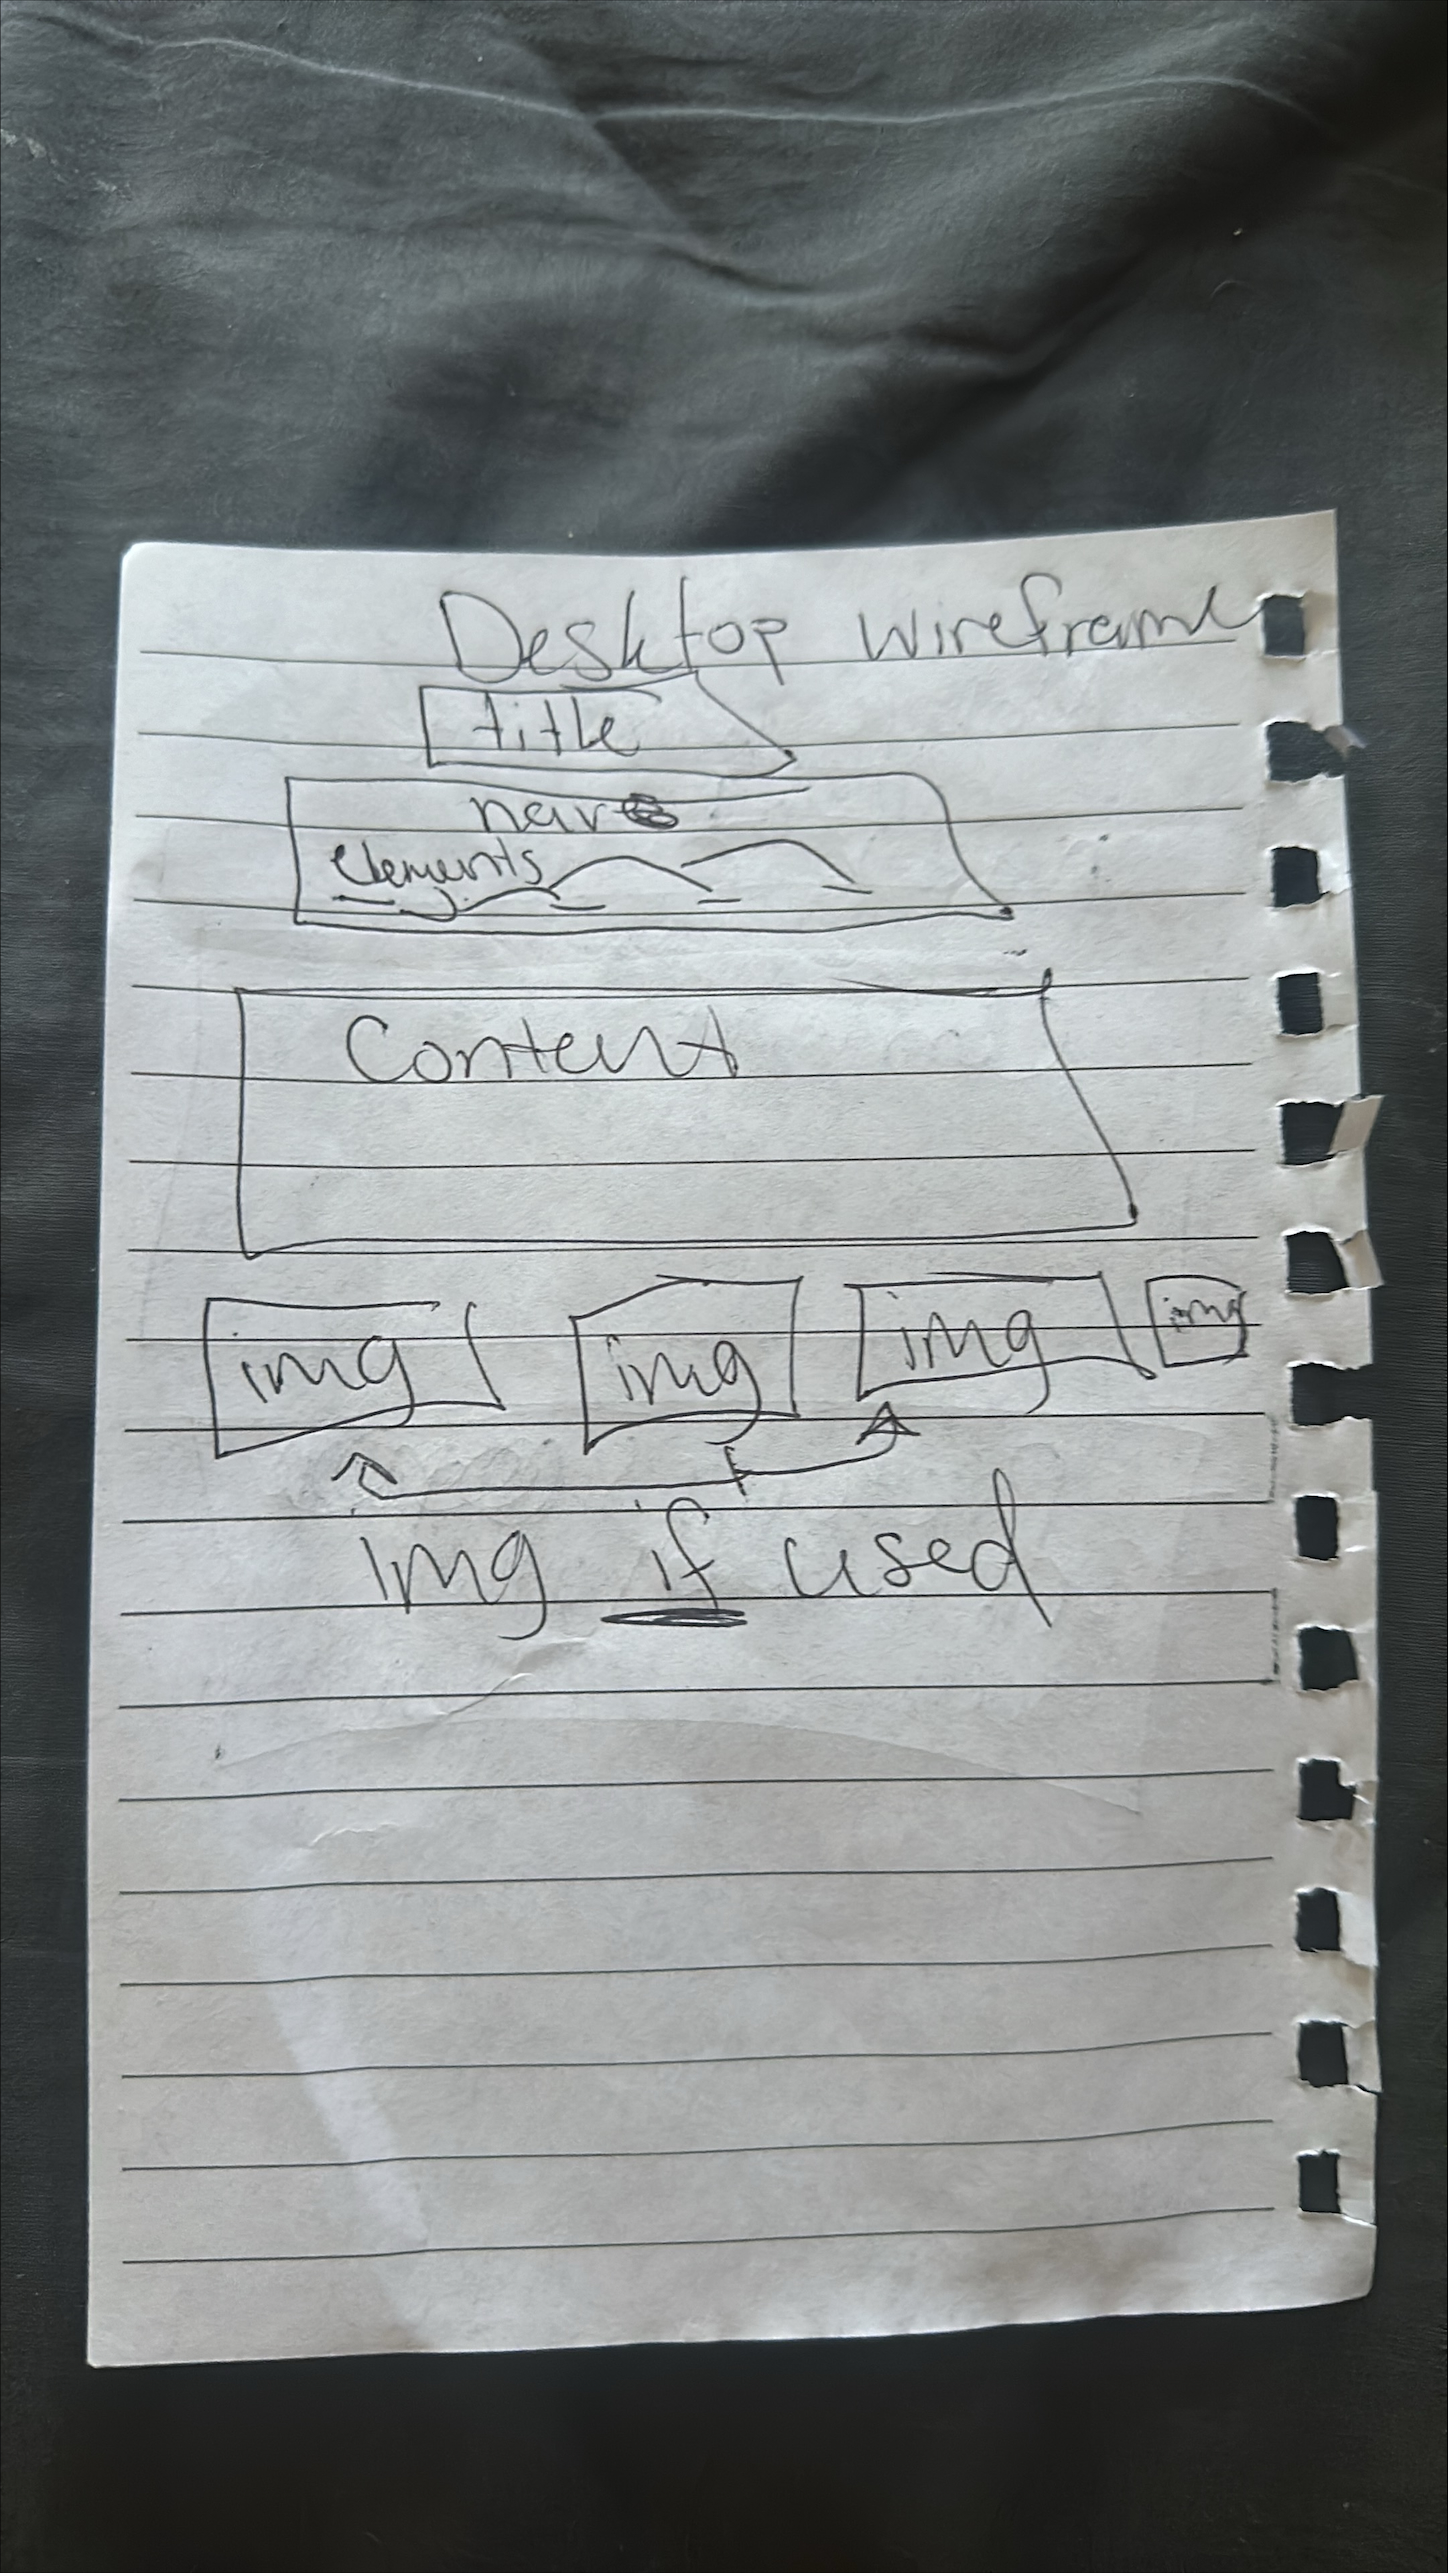 Desktop wireframe
title
nav
elements
Content
img img img img
img if used